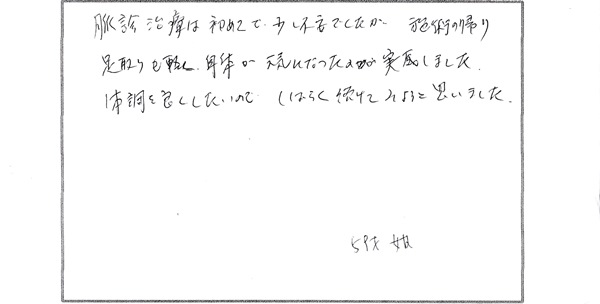 脈診治療は初めてで少し不安でしたが 施術の帰り
足取りも軽く、身体が元気になったのが実感しました。
体調を良くしたいので しばらく続けてみようと思いました。
59才 女性